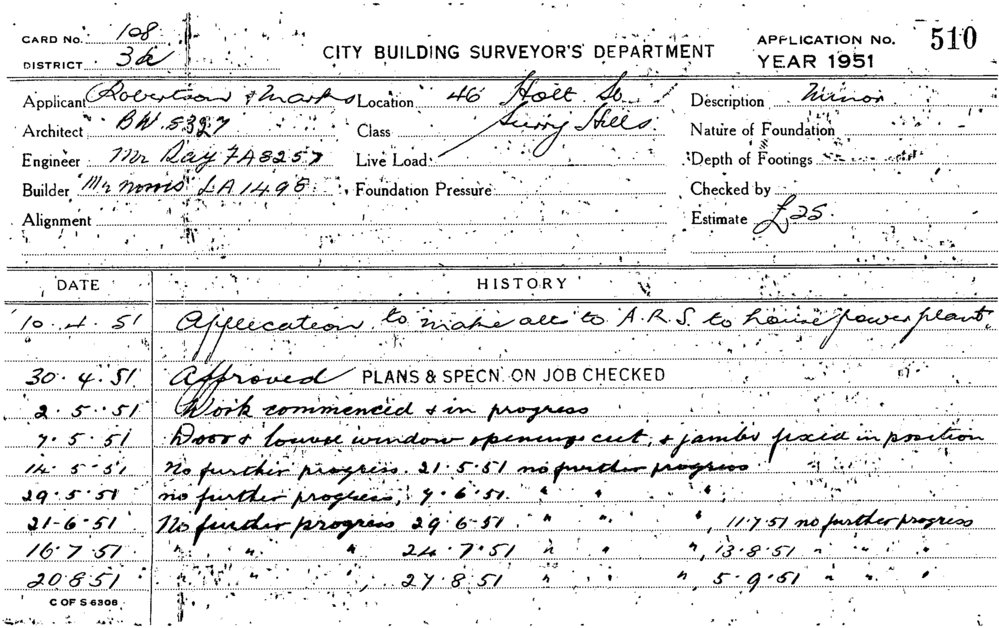 CARD NO. 108
DISTRICT 3a
CITY BUILDING SURVEYOR'S DEPARTMENT
APPLICATION NO. 510
YEAR 1951
Applicant Robertson & Marks Location 46 Holt St Description Minor
Architect BW 5327 Class Surry Hills Nature of Foundation
Engineer Mr Ray FA8257 Live Load Depth of Footings
Builder Mr Norris LA1498 Foundation Pressure Checked by
Alignment Estimate £25.
DATE HISTORY
10.4.51 Application to make alts to A.R.S. to house power plant.
30.4.51 Approved PLANS & SPECN. ON JOB CHECKED
2.5.51 Work commenced & in progress
7.5.51 Door & louvre window openings cut, & jambs fixed in position
14.5.51 No further progress. 21.5.51 no further progress
29.5.51 no further progress, 7.6.51. " " "
21-6-51 No further progress 29.6.51 " " ", 11.7.51 no further progress
16.7.51 " " " 24.7.51 " " ", 13.8.51 " " "
20.8.51 " " " 27.8.51 " " ", 5.9.51 " " "
C OF S 6306